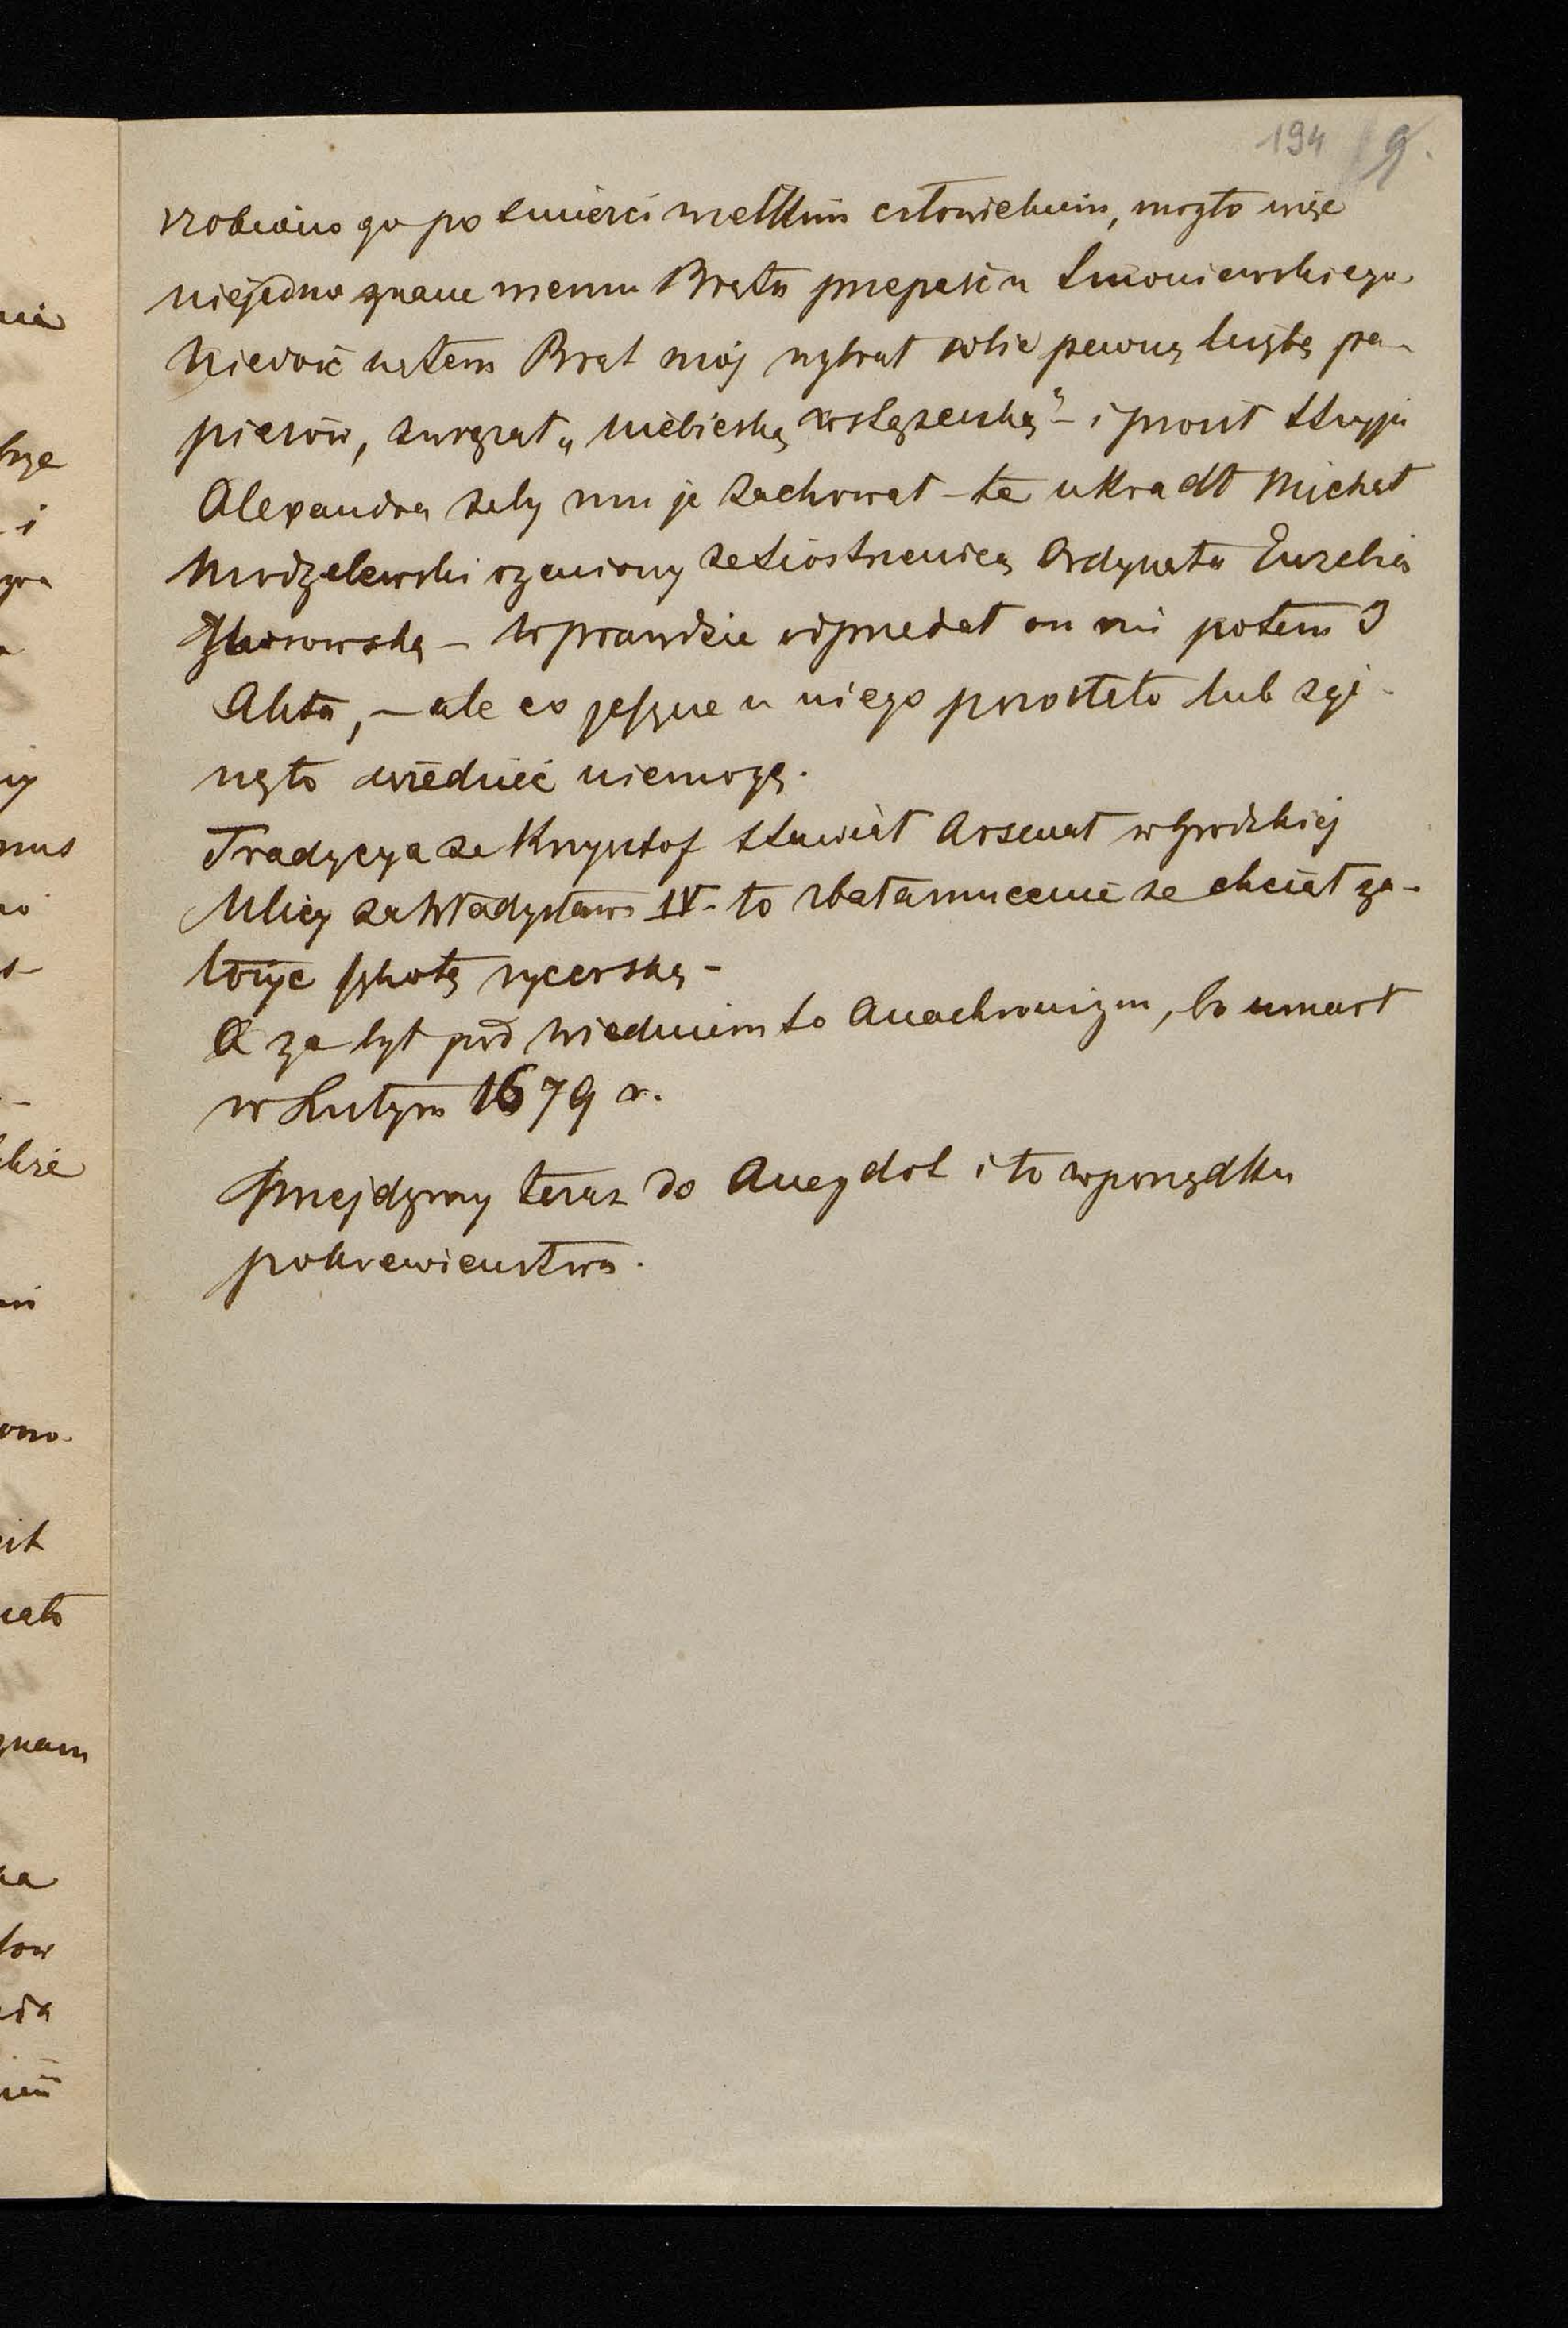 194 9.
zrobiono go po śmierci wielkim człowiekiem, mogło więc
niejedno znane memu Bratu przepaść u
Niedość natem Brat mój wybrał sobie pewną liczbę pa-
pierów, związał „niebieską wstążeczką” – i prosił Stryja
Alexandra żeby mu je zachował – te ukradł Michał
Modzelewski ożeniony ze Siostrzenicą Ordynata
– Wprawdzie odprzedał on mi potem 3
Akta, – ale co jeszcze u niego pozostało lub zgi-
nęło wiedzieć niemogę.
Tradycya że Krzysztof stawiał Arsenał w Grodzkiej
Ulicy za Władysława IV – to zbałamucenie że chciał za-
łożyć szkołę rycerską –
A że był pod Wiedniem to Anachronizm, bo umarł
w Lutym 1679 r.
Przejdźmy teraz do Anegdot i to w porządku
pokrewieństwa.